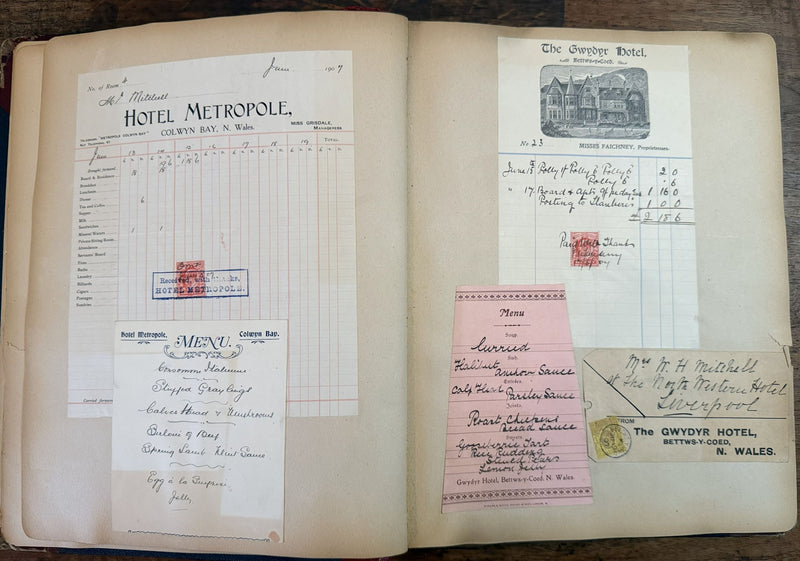 No. of Room 4
June 1907
Mr Mitchell
HOTEL METROPOLE,
COLWYN BAY, N. Wales.
TELEGRAMS, "METROPOLE COLWYN BAY"
MISS GRISDALE,
MANAGERESS
June 13 15 16 17 18 19 TOTAL
Brought forward
Board & Residence 18 18
Breakfast
Luncheon
Dinner
Tea and Coffee 6
Supper
Milk
Sandwiches
Mineral Waters 1 1
Private Sitting Room
Attendance
Servants' Board
Fires
Baths
Laundry
Billiards
Cigars
Postages
Sundries
Received, with thanks,
HOTEL METROPOLE.
Carried forward
Hotel Metropole, Colwyn Bay.
MENU.
Consommé
Stuffed
Calves Head & Mushrooms
Sirloin of Beef
Spring Lamb Mint Sauce
Egg à la Surprise
Jelly
The Gwydyr Hotel,
Bettws-y-Coed.
No 23
MISSES FAICHNEY, Proprietresses.
June 15 2 0
6
" 17 Board & Apts 1 16 0
Posting to Llanberis 1 0 0
2 18 6
Paid With Thanks
Menu
Soup
Curried
Fish
Halibut Anchovy Sauce
Entrées
Calf Head Parsley Sauce
Joints
Roast Chickens
Bread Sauce
Sweets
Gooseberrie Tart
Rice Pudding
Stewed Pears
Lemon Jelly
Gwydyr Hotel, Bettws-y-Coed, N. Wales.
Mrs W. H Mitchell
at The North Western Hotel
Liverpool
FROM
The GWYDYR HOTEL,
BETTWS-Y-COED,
N. WALES.